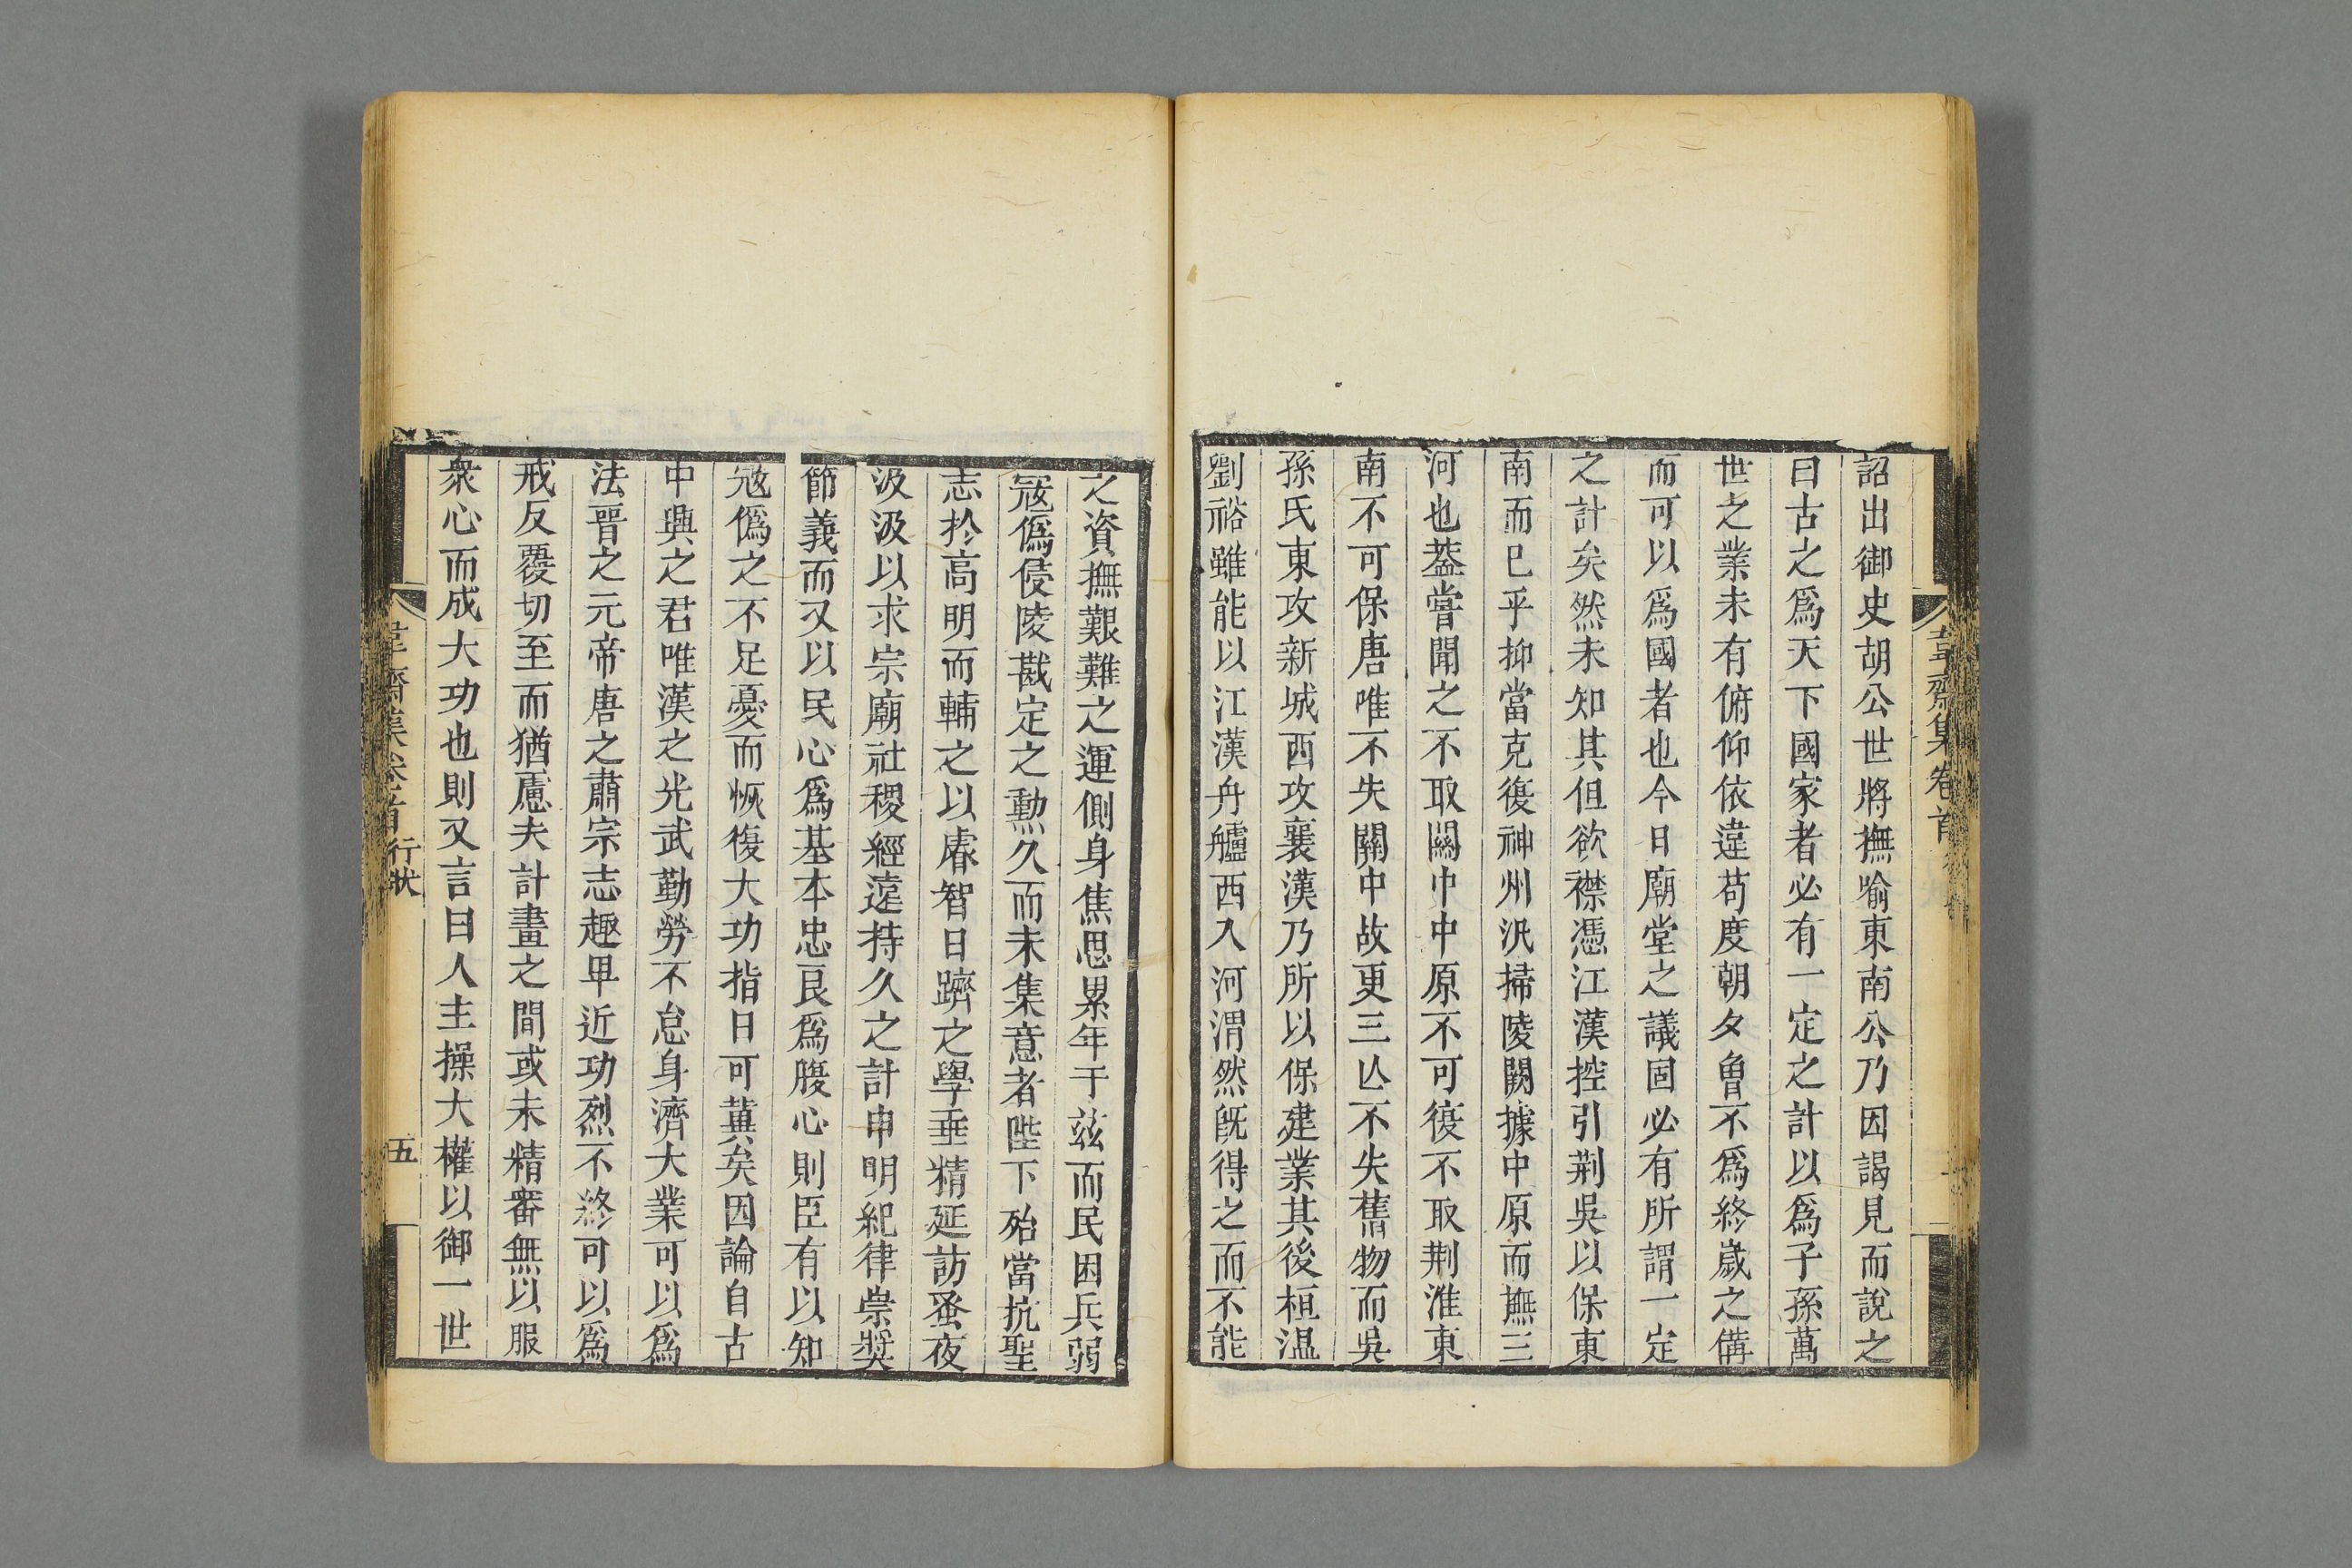 韋齋集卷首
詔出御史胡公世將撫喻東南公乃因謁見而說之
曰古之爲天下國家者必有一定之計以爲子孫萬
世之業未有俯仰依違苟度朝夕曾不爲終歲之備
而可以爲國者也今日廟堂之議固必有所謂一定
之計矣然未知其但欲襟憑江漢控引荆吳以保東
南而已乎抑當克復神州汛掃陵闕據中原而撫三
河也葢嘗聞之不取關中中原不可復不取荆淮東
南不可保唐唯不失關中故更三亾不失舊物而吳
孫氏東攻新城西攻襄漢乃所以保建業其後桓溫
劉裕雖能以江漢舟艫西入河渭然旣得之而不能
之資撫艱難之運側身焦思累年于茲而民困兵弱
冦僞侵陵戡定之勲久而未集意者陛下殆當抗聖
志扵高明而輔之以睿智日躋之學垂精延訪蚤夜
汲汲以求宗廟社稷經遠持久之計申明紀律崇奬
節義而又以民心爲基本忠良爲腹心則臣有以知
冦僞之不足憂而恢復大功指日可冀矣因論自古
中興之君唯漢之光武勤勞不怠身濟大業可以爲
法晉之元帝唐之肅宗志趣卑近功烈不終可以爲
戒反覆切至而猶慮夫計畫之間或未精審無以服
衆心而成大功也則又言曰人主操大權以御一世
韋齋集卷首 行狀 五